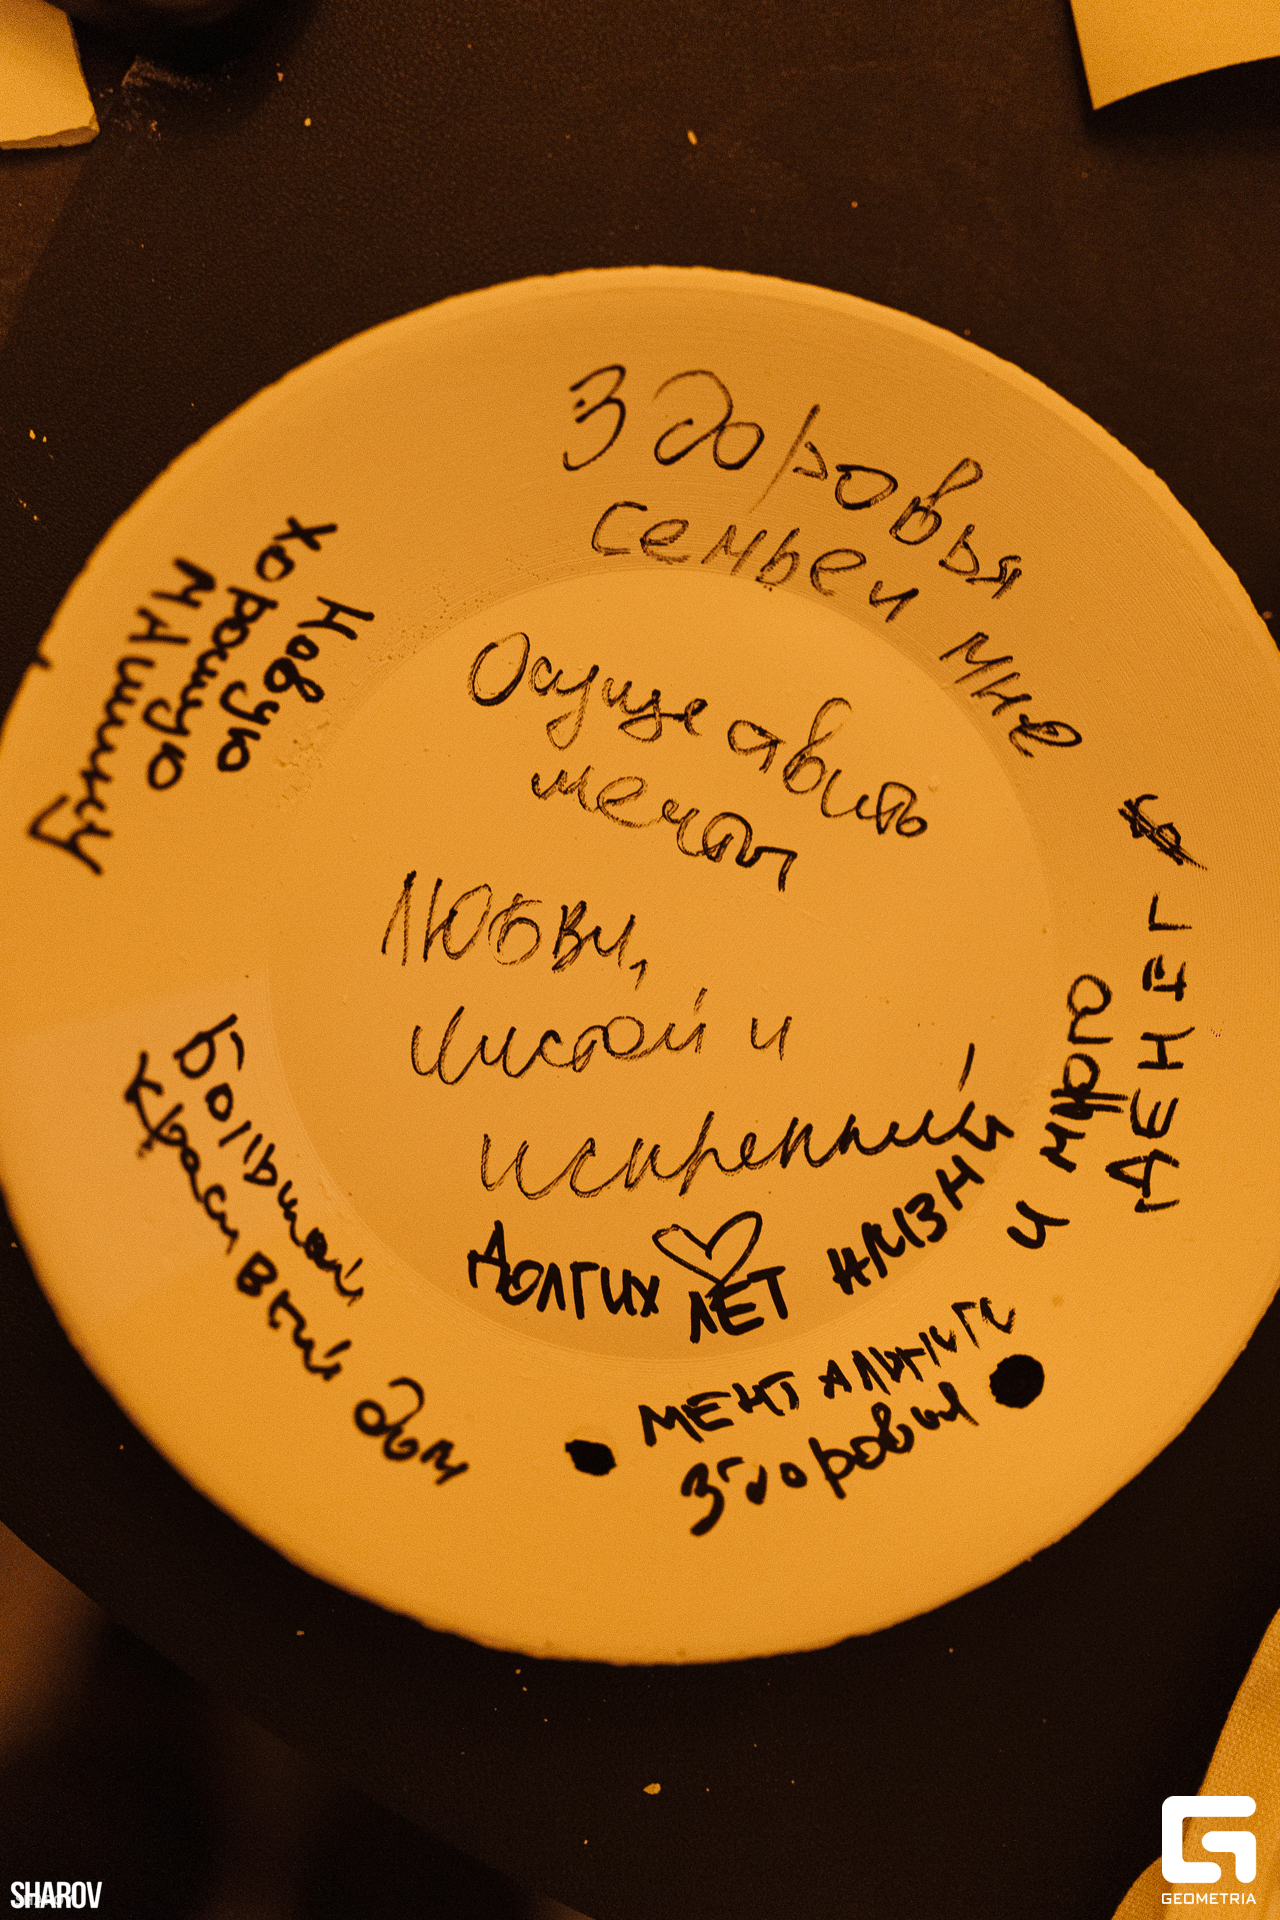 Здоровья
семьеи мне
Осуществить
мечты
Любви,
чистой и
искренний
Долгих лет жизни
и мира
ДЕНЕГ $
МЕНТАЛЬНОГО
здоровья
Большой
красивый дом
Новую
хорошую
машину
SHAROV
GEOMETRIA